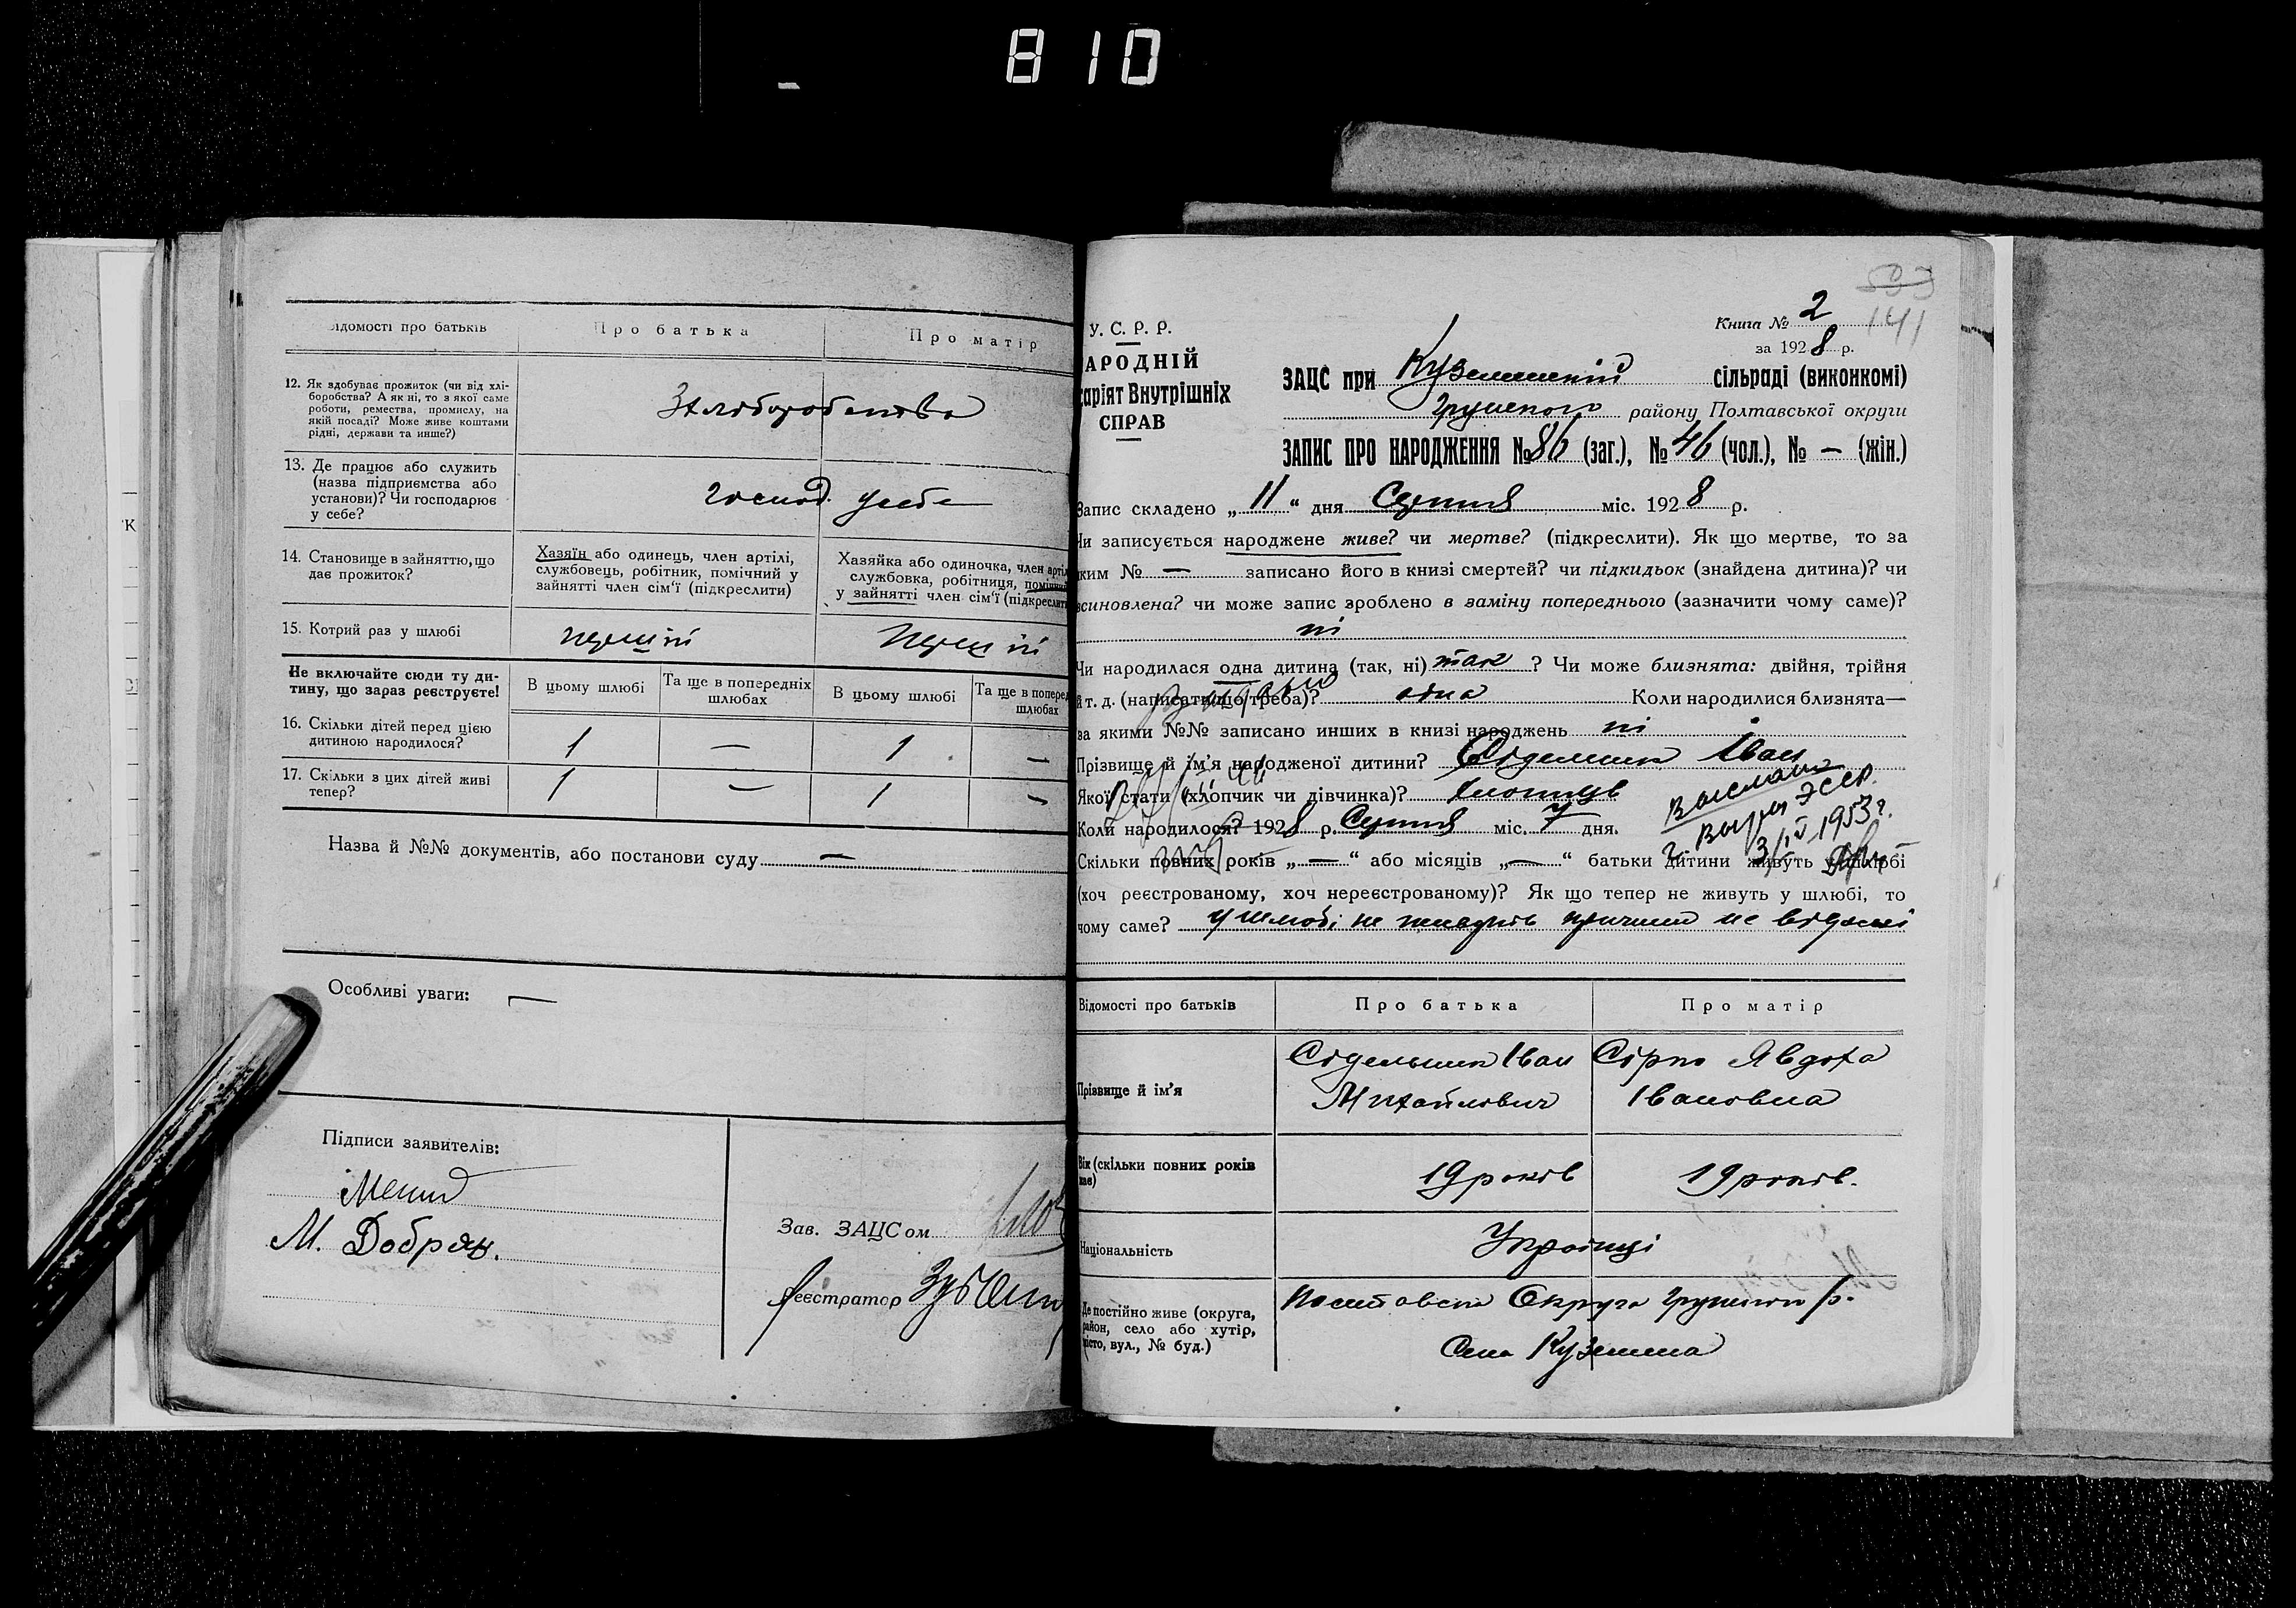 810
Відомості про батьків
Про батька
Про матір
12. Як здобуває прожиток (чи від хлі-
боробства? А як ні, то з якої саме
роботи, ремества, промислу, на
якій посаді? Може живе коштами
рідні, держави та инше?)
З хліборобства
13. Де працює або служить
(назва підприємства або
установи)? Чи господарює
у себе?
господ. у себе
14. Становище в зайняттю, що
дає прожиток?
Хазяїн або одинець, член артілі,
службовець, робітник, помічний у
зайнятті член сім'ї (підкреслити)
Хазяйка або одиночка, член артіл
службовка, робітниця, помічний
у зайнятті член сім'ї (підкреслити
15. Котрий раз у шлюбі
перший
перший
Не включайте сюди ту ди-
тину, що зараз реєструєте!
В цьому шлюбі
Та ще в попередніх
шлюбах
В цьому шлюбі
Та ще в поперед
шлюбах
16. Скільки дітей перед цією
дитиною народилося?
1 — 1 —
17. Скільки з цих дітей живі
тепер?
1 — 1 —
Назва й №№ документів, або постанови суду —
Особливі уваги: —
Підписи заявителів:
М. Добряк.
Зав. ЗАЦСом
Реєстратор
У. С. Р. Р.
АРОДНІЙ
аріят Внутрішніх
СПРАВ
533
141
Книга № 2
за 1928 р.
ЗАЦС при Куземинській сільраді (виконкомі)
Грунського району Полтавської округи
ЗАПИС ПРО НАРОДЖЕННЯ № 86 (заг.), № 46 (чол.), № — (жін.)
Запис складено „11“ дня Серпня міс. 1928 р.
Чи записується народжене живе? чи мертве? (підкреслити). Як що мертве, то за
яким № — записано його в книзі смертей? чи підкидьок (знайдена дитина)? чи
всиновлена? чи може запис зроблено в заміну попереднього (зазначити чому саме)?
ні
Чи народилася одна дитина (так, ні) так ? Чи може близнята: двійня, трійня
й т. д. (написати що треба)? одна Коли народилися близнята—
за якими №№ записано инших в книзі народжень ні
Прізвище й ім'я народженої дитини? Сідельник Іван
Якої стати (хлопчик чи дівчинка)? хлопець
Коли народилося? 1928 р. Серпня міс. 7 дня.
1953 г.
Скільки повних років „—“ або місяців „—“ батьки дитини живуть у шлюбі
(хоч реєстрованому, хоч нереєстрованому)? Як що тепер не живуть у шлюбі, то
чому саме? у шлюбі не живуть причини не відомі
Відомості про батьків
Про батька
Про матір
Прізвище й ім'я
Сідельник Іван
Михайлович
Сірко Явдоха
Івановна
Вік (скільки повних років
має)
19 років
19 років.
Національність
Українці
Де постійно живе (округа,
район, село або хутір,
місто, вул., № буд.)
Полтавська Округа Грунський р.
Село Куземина